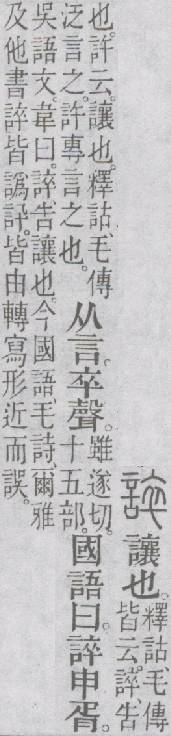 誶 讓也。釋詁、毛傳
皆云。誶、告
也。許云。讓也。釋詁、毛傳
泛言之。許專言之也。
从言。卒聲。雖遂切。
十五部。
國語曰。誶申胥。
吳語文。韋曰。誶、告讓也。今國語、毛詩、爾雅
及他書誶皆譌訊。皆由轉寫形近而誤。